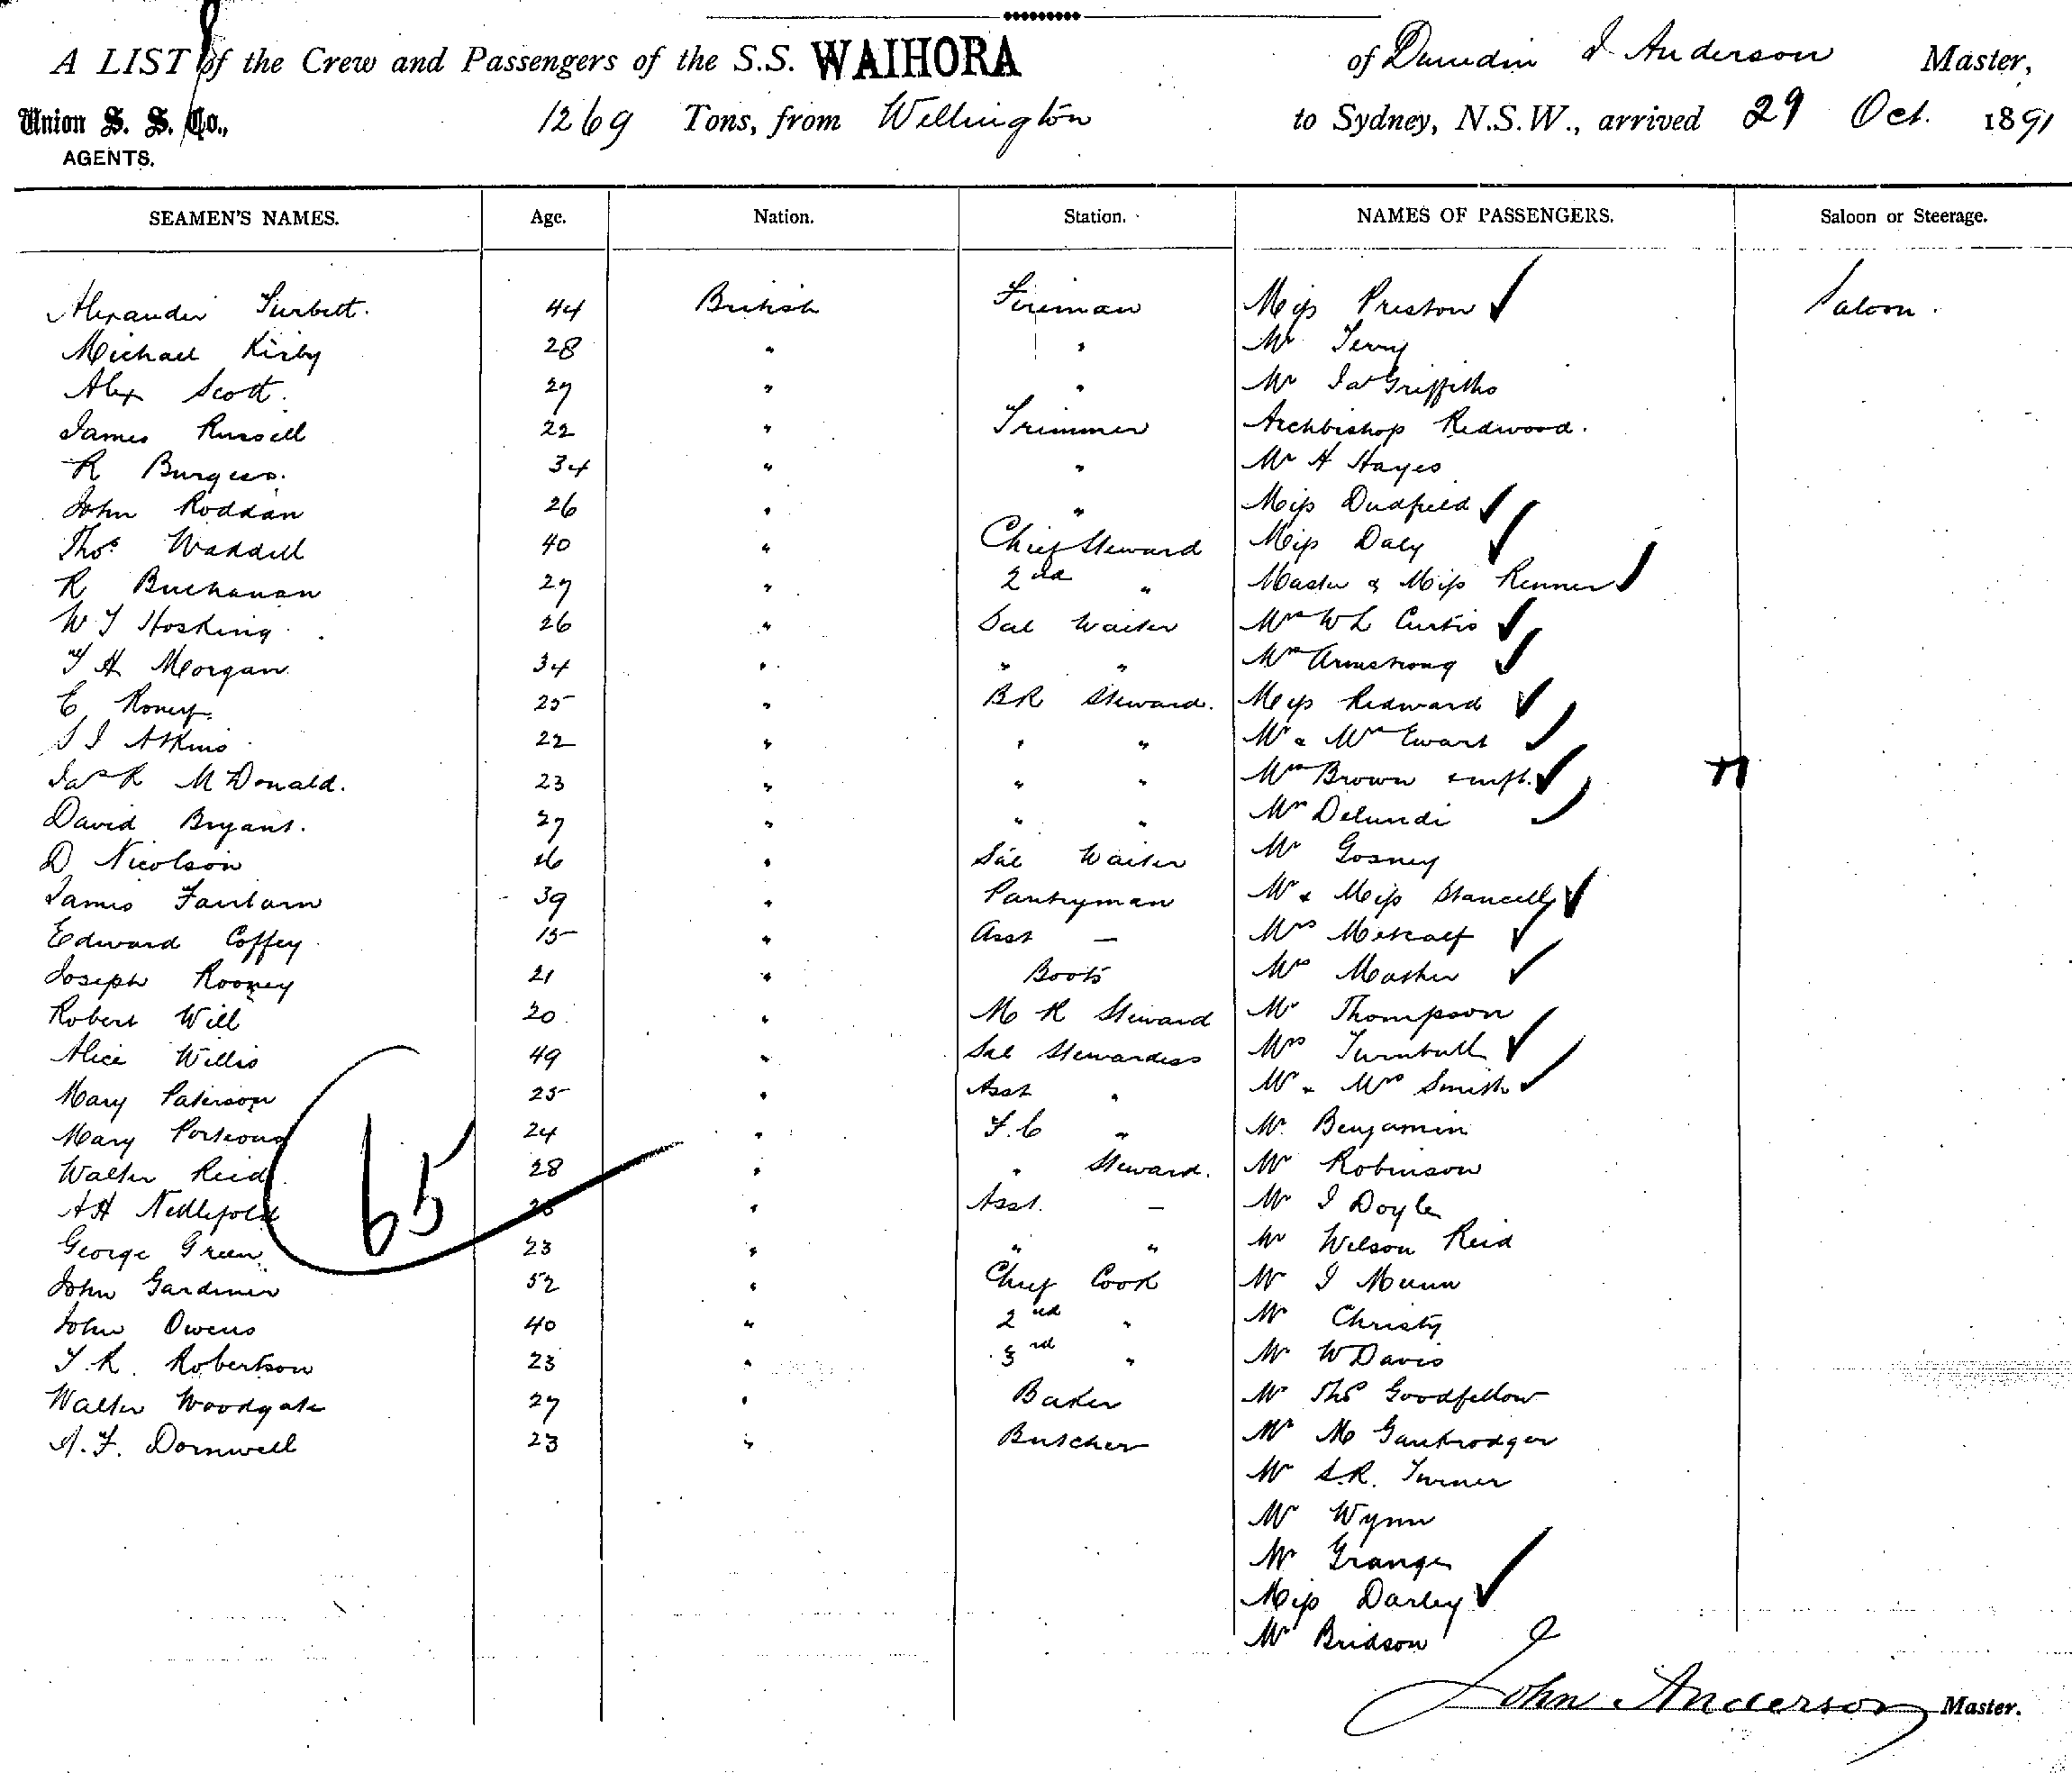 A LIST of the Crew and Passengers of the S.S. WAIHORA of Dunedin J Anderson Master,
Union S. S. Co., AGENTS. 1269 Tons, from Wellington to Sydney, N.S.W., arrived 29 Oct. 1891
SEAMEN'S NAMES. Age. Nation. Station. NAMES OF PASSENGERS. Saloon or Steerage.
Alexander Turbett. 44 British Fireman Miss Preston Saloon.
Michael Kirby 28 " " Mr Terry
Alex Scott. 27 " " Mr Jas Griffiths
James Russell 22 " Trimmer Archbishop Redwood.
R Burgess. 34 " " Mr H Hayes
John Roddan 26 " " Miss Dudfield
Thos. Waddell 40 " Chief Steward Miss Daly
R Buchanan 27 " 2nd " Master & Miss Renner
W J Hosking 26 " Sal Waiter Mrs W L Curtis
T H Morgan 34 " " " Mrs Armstrong
C Roney. 25 " BR Steward. Miss Redward
S J Atkins 22 " " " Mr & Mrs Ewart
Jas R McDonald. 23 " " " Mrs Brown & inft.
David Bryant. 27 " " " Mr Delundi
D Nicolson " Sal Waiter Mr Gosney
James Fairbairn 39 " Pantryman Mr & Miss
Edward Coffey 15 " Asst — Mrs Metcalf
Joseph Rooney 21 " Boots Mrs
Robert Will 20 " M R Steward Mr Thompson
Alice Willis 49 " Sal Stewardess Mrs Turnbull
Mary Paterson 25 " Asst " Mr & Mrs Smith
Mary Porteous 24 " F.C " Mr. Benjamin
Walter Reid. 28 " " Steward. Mr Robinson
A H Nettlefold " Asst. — Mr J Doyle
George Green. 23 " " " Mr Wilson Reid
65
John Gardiner 52 " Chief Cook Mr J Munn
John Owens 40 " 2nd " Mr Christy
T. R. Robertson 23 " 3rd " Mr W Davis
Walter Woodgate 27 " Baker Mr Thos Goodfellow
A. F. Dornwell 23 " Butcher Mr M Gankrodger
Mr S.R. Turner
Mr Wynn
Mr Granger
Miss Darley
Mr Bridson
John Anderson Master.